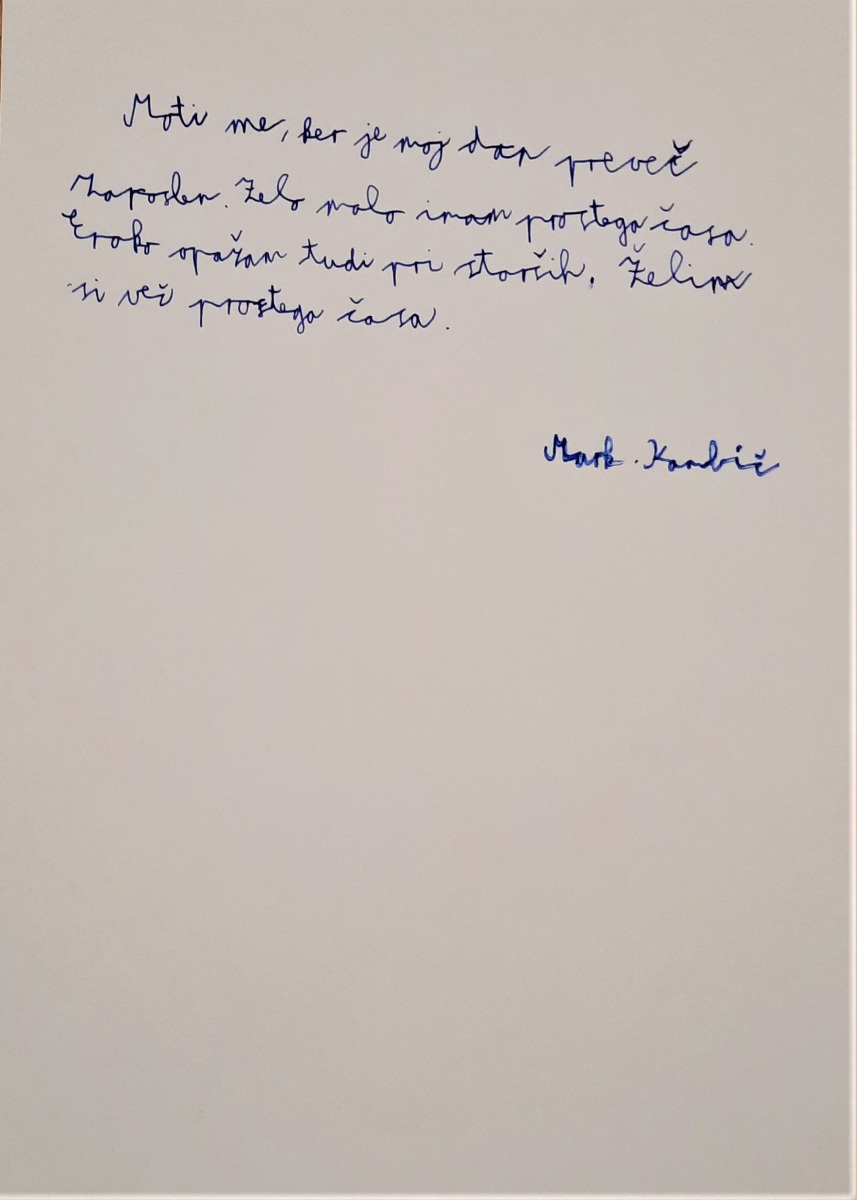 Moti me, ker je moj dan preveč
zaposlen. Zelo malo imam prostega časa.
Enako opažam tudi pri starših. Želim
si več prostega časa.
Mark Kambič